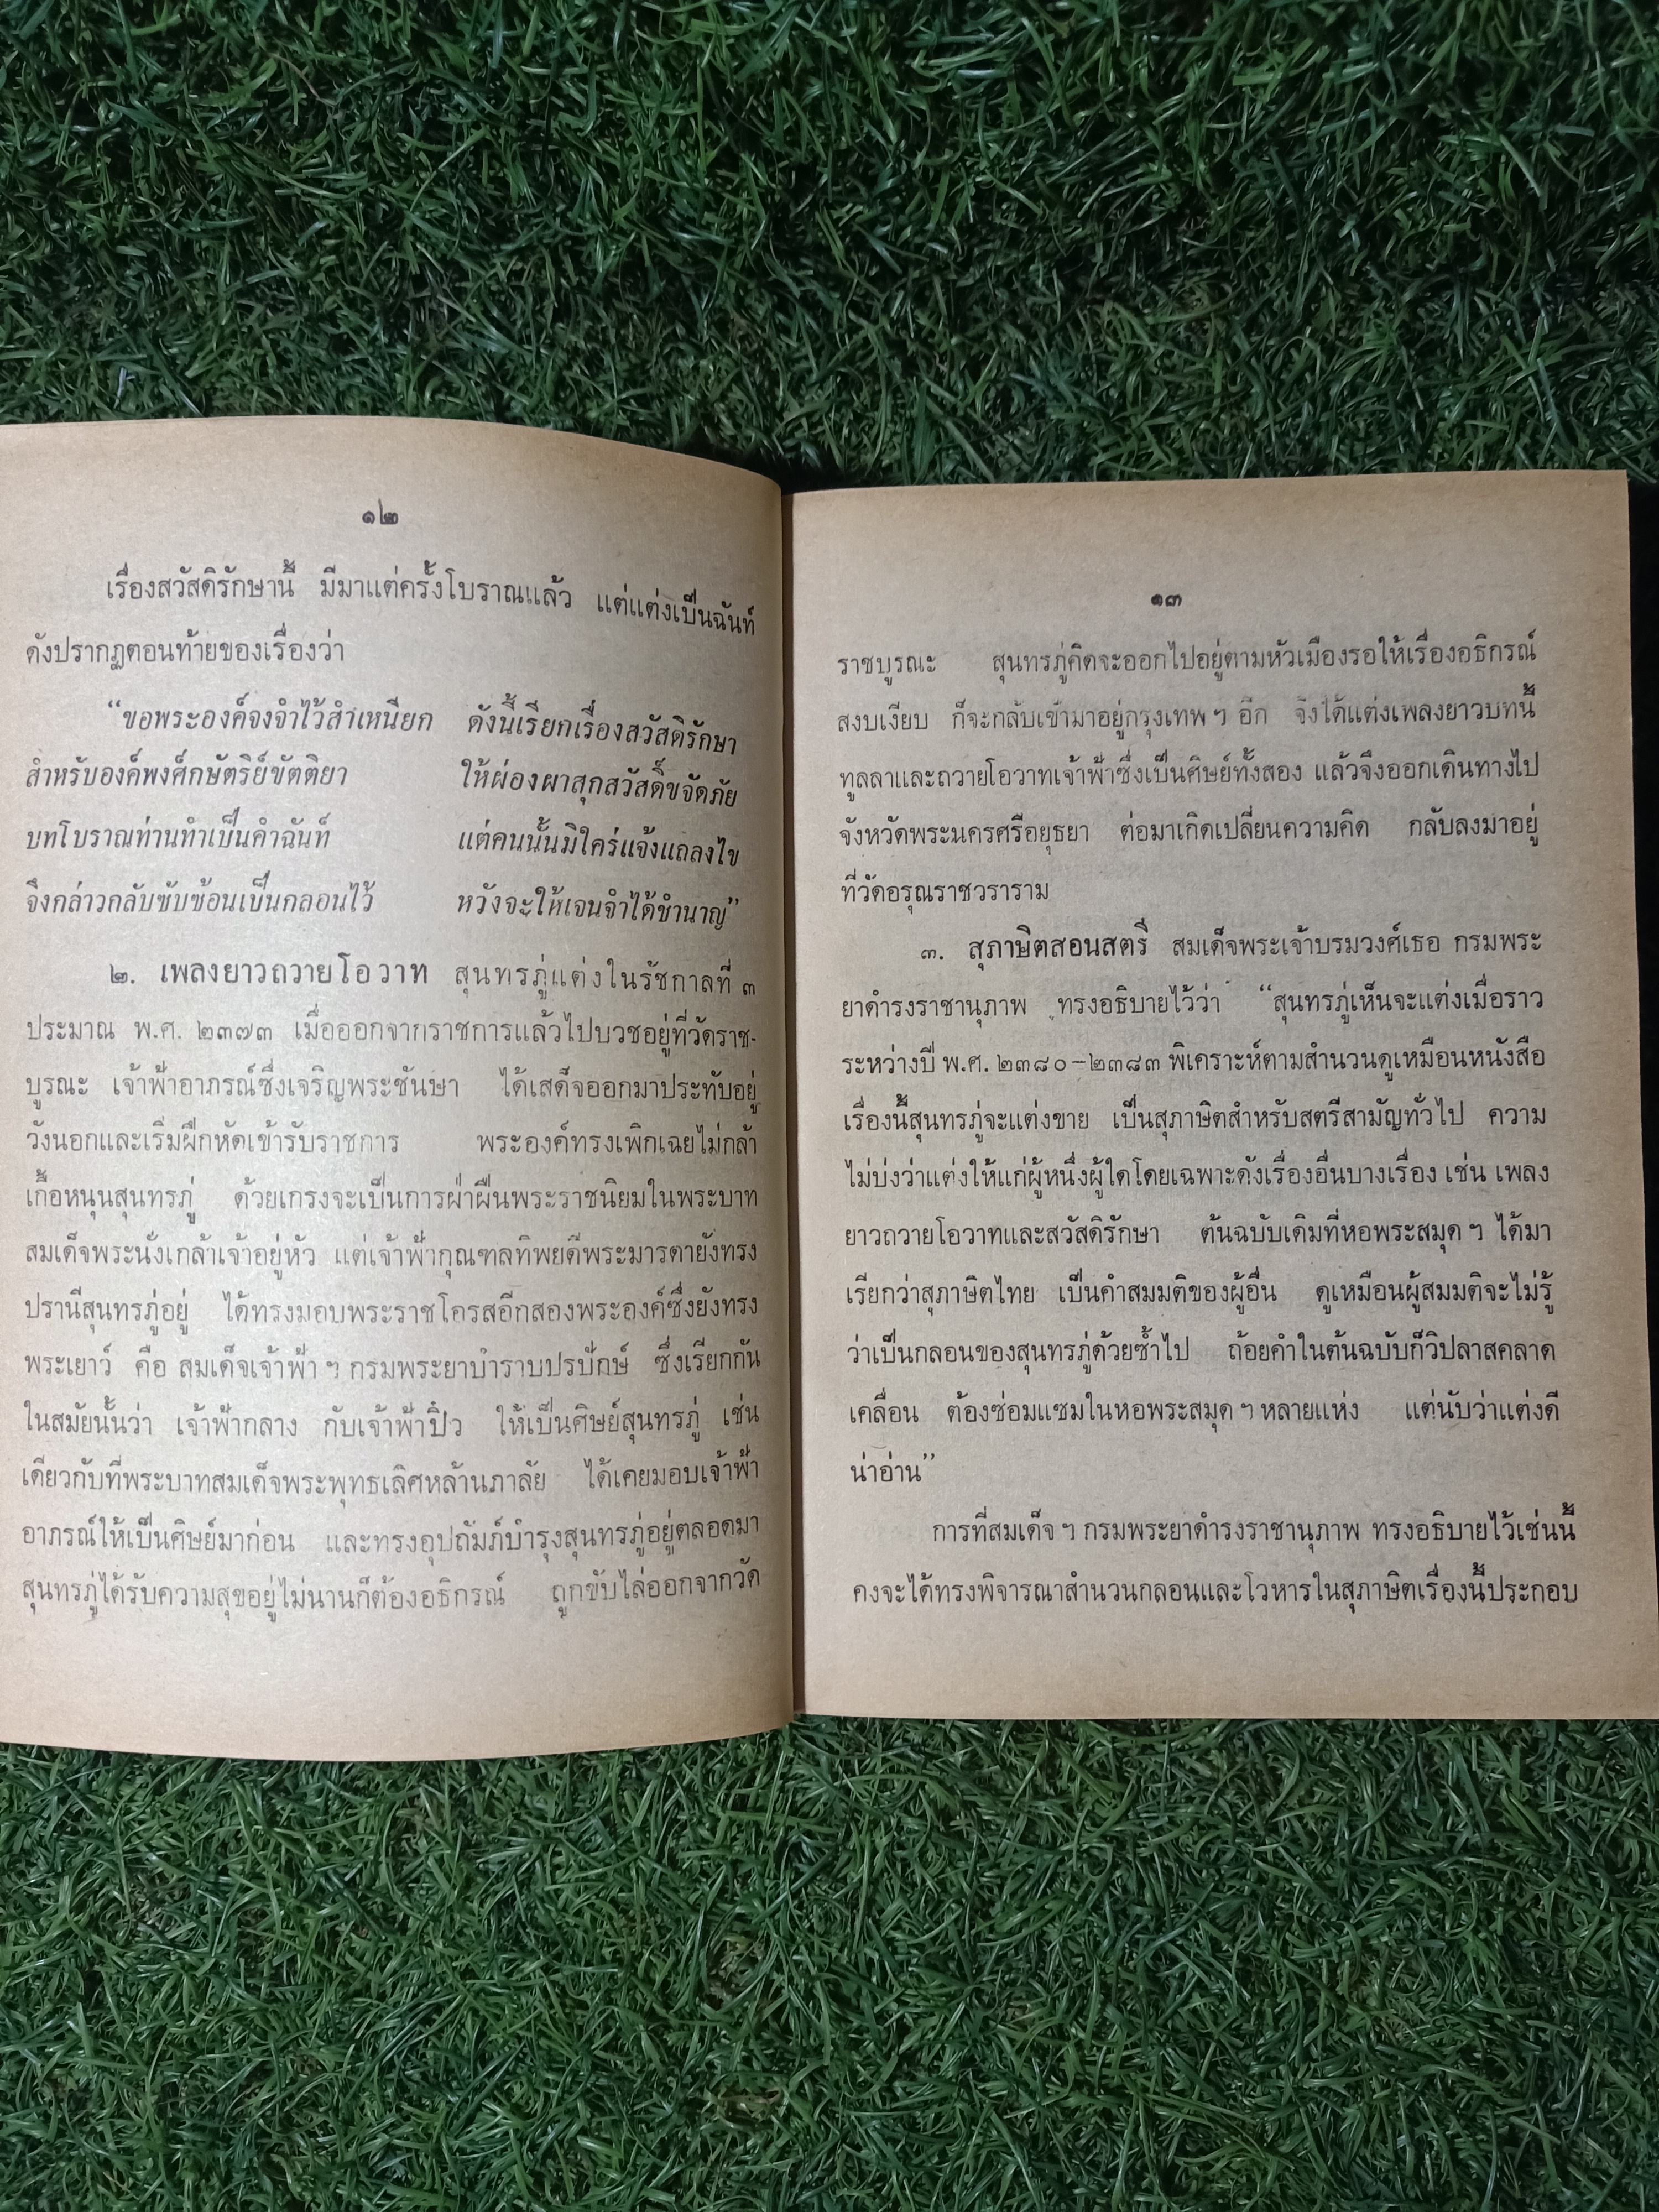 ๑๒
เรื่องสวัสดิรักษานี้ มีมาแต่ครั้งโบราณแล้ว แต่แต่งเป็นฉันท์
ดังปรากฏตอนท้ายของเรื่องว่า
“ขอพระองค์จงจำไว้สำเหนียก ดังนี้เรียกเรื่องสวัสดิรักษา
สำหรับองค์พงศ์กษัตริย์ขัตติยา ให้ผ่องผาสุกสวัสดิ์ขจัดภัย
บทโบราณท่านทำเป็นคำฉันท์ แต่คนนั้นมิใคร่แจ้งแถลงไข
จึงกล่าวกลับซับซ้อนเป็นกลอนไว้ หวังจะให้เจนจำได้ชำนาญ”
๒. เพลงยาวถวายโอวาท สุนทรภู่แต่งในรัชกาลที่ ๓
ประมาณ พ.ศ. ๒๓๗๓ เมื่อออกจากราชการแล้วไปบวชอยู่ที่วัดราช-
บูรณะ เจ้าฟ้าอาภรณ์ซึ่งเจริญพระชันษา ได้เสด็จออกมาประทับอยู่
วังนอกและเริ่มฝึกหัดเข้ารับราชการ พระองค์ทรงเพิกเฉยไม่กล้า
เกื้อหนุนสุนทรภู่ ด้วยเกรงจะเป็นการฝ่าฝืนพระราชนิยมในพระบาท
สมเด็จพระนั่งเกล้าเจ้าอยู่หัว แต่เจ้าฟ้ากุณฑลทิพยดีพระมารดายังทรง
ปรานีสุนทรภู่อยู่ ได้ทรงมอบพระราชโอรสอีกสองพระองค์ซึ่งยังทรง
พระเยาว์ คือ สมเด็จเจ้าฟ้า ฯ กรมพระยาบำราบปรปักษ์ ซึ่งเรียกกัน
ในสมัยนั้นว่า เจ้าฟ้ากลาง กับเจ้าฟ้าปิ๋ว ให้เป็นศิษย์สุนทรภู่ เช่น
เดียวกับที่พระบาทสมเด็จพระพุทธเลิศหล้านภาลัย ได้เคยมอบเจ้าฟ้า
อาภรณ์ให้เป็นศิษย์มาก่อน และทรงอุปถัมภ์บำรุงสุนทรภู่อยู่ตลอดมา
สุนทรภู่ได้รับความสุขอยู่ไม่นานก็ต้องอธิกรณ์ ถูกขับไล่ออกจากวัด
๑๓
ราชบูรณะ สุนทรภู่คิดจะออกไปอยู่ตามหัวเมืองรอให้เรื่องอธิกรณ์
สงบเงียบ ก็จะกลับเข้ามาอยู่กรุงเทพ ฯ อีก จึงได้แต่งเพลงยาวบทนี้
ทูลลาและถวายโอวาทเจ้าฟ้าซึ่งเป็นศิษย์ทั้งสอง แล้วจึงออกเดินทางไป
จังหวัดพระนครศรีอยุธยา ต่อมาเกิดเปลี่ยนความคิด กลับลงมาอยู่
ที่วัดอรุณราชวราราม
๓. สุภาษิตสอนสตรี สมเด็จพระเจ้าบรมวงศ์เธอ กรมพระ
ยาดำรงราชานุภาพ ทรงอธิบายไว้ว่า “สุนทรภู่เห็นจะแต่งเมื่อราว
ระหว่างปี พ.ศ. ๒๓๘๐–๒๓๘๓ พิเคราะห์ตามสำนวนดูเหมือนหนังสือ
เรื่องนี้สุนทรภู่จะแต่งขาย เป็นสุภาษิตสำหรับสตรีสามัญทั่วไป ความ
ไม่บ่งว่าแต่งให้แก่ผู้หนึ่งผู้ใดโดยเฉพาะดังเรื่องอื่นบางเรื่อง เช่น เพลง
ยาวถวายโอวาทและสวัสดิรักษา ต้นฉบับเดิมที่หอพระสมุด ฯ ได้มา
เรียกว่าสุภาษิตไทย เป็นคำสมมติของผู้อื่น ดูเหมือนผู้สมมติจะไม่รู้
ว่าเป็นกลอนของสุนทรภู่ด้วยซ้ำไป ถ้อยคำในต้นฉบับก็วิปลาสคลาด
เคลื่อน ต้องซ่อมแซมในหอพระสมุด ฯ หลายแห่ง แต่นับว่าแต่งดี
น่าอ่าน”
การที่สมเด็จ ฯ กรมพระยาดำรงราชานุภาพ ทรงอธิบายไว้เช่นนี้
คงจะได้ทรงพิจารณาสำนวนกลอนและโวหารในสุภาษิตเรื่องนี้ประกอบ